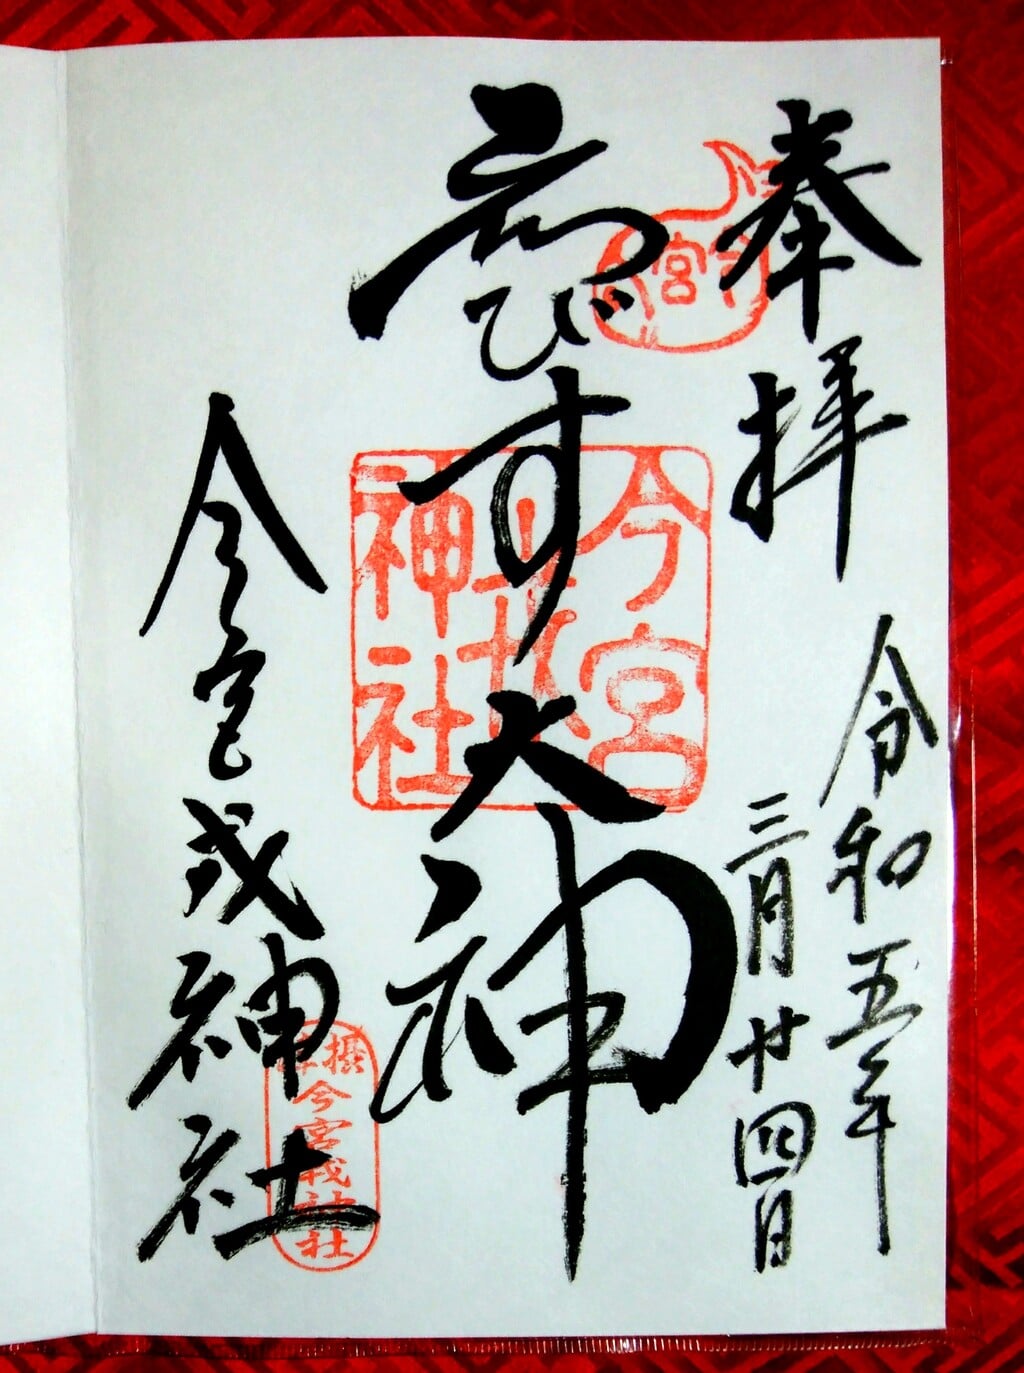 奉拝
令和五年
三月廿四日
今宮
ゑびす大神
今宮戎神社
今宮戎神社
摂
今宮戎神社